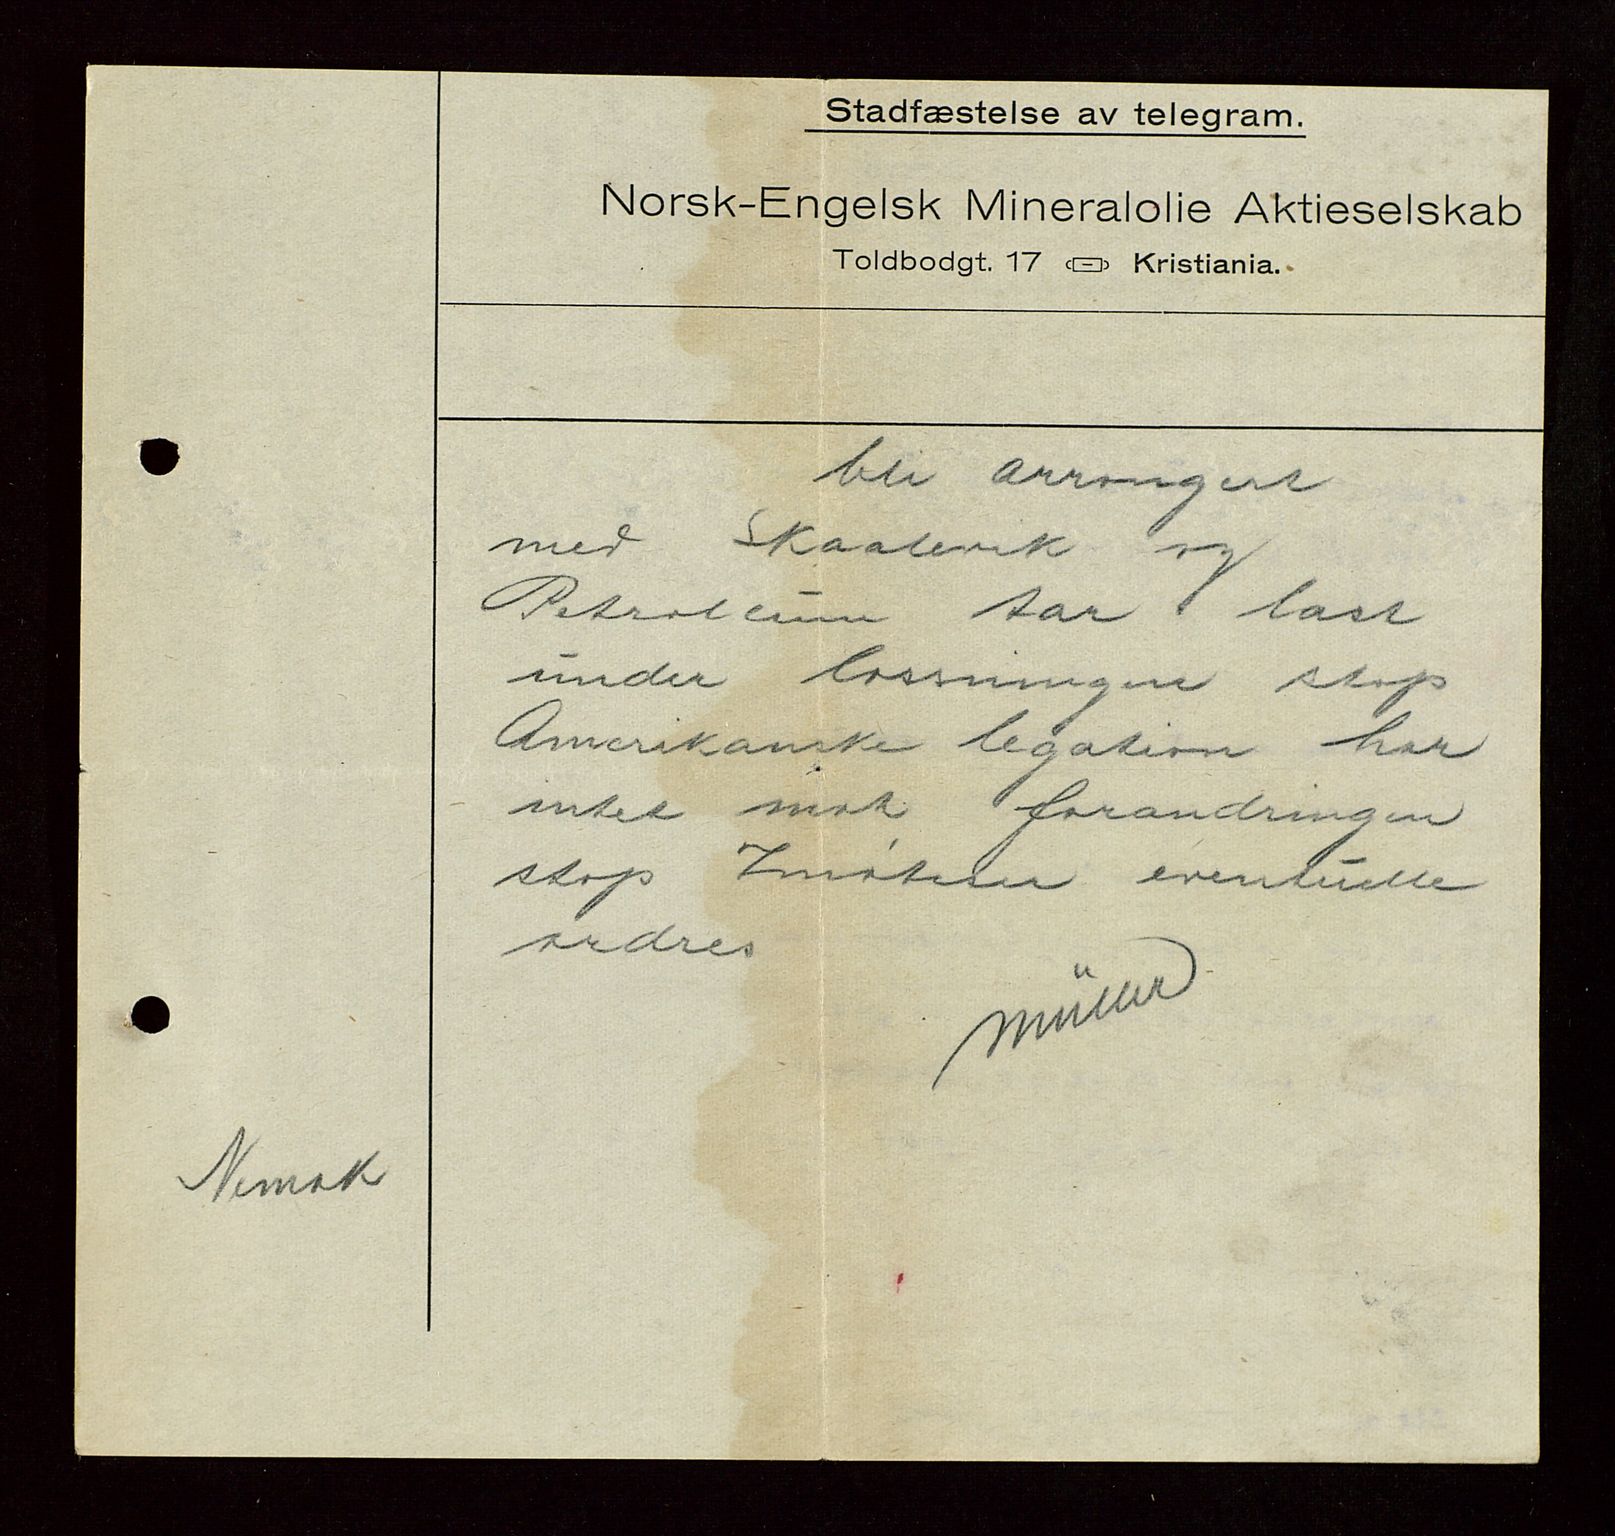 Stadfæstelse av telegram.
Norsk-Engelsk Mineralolie Aktieselskab
Toldbodgt. 17 Kristiania.
bli arrangert
med Skaalevik og
Petroleum tar last
under lossningen stop
Amerikanske legation har
intet mot forandringen
stop Imøteser eventuelle
ordres
Müller
Nemak